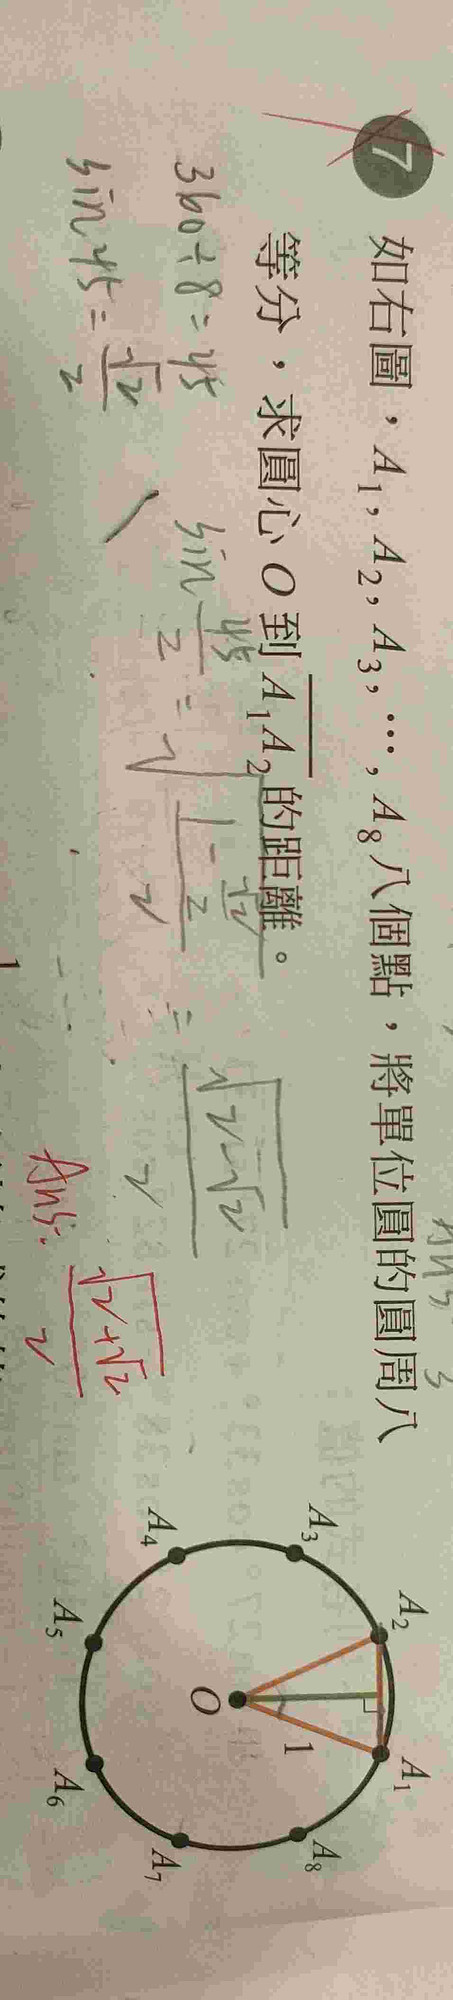 7
如右圖，A₁, A₂, A₃, …, A₈ 八個點，將單位圓的圓周八
等分，求圓心 O 到 A₁A₂ 的距離。
360÷8=45
sin 45 = √2/2
sin 45/2 = √((1-√2/2)/2) = √(2-√2)/2
Ans: √(2+√2)/2
A₃
A₂
A₄
1
A₁
A₅
O
A₆
A₇
A₈